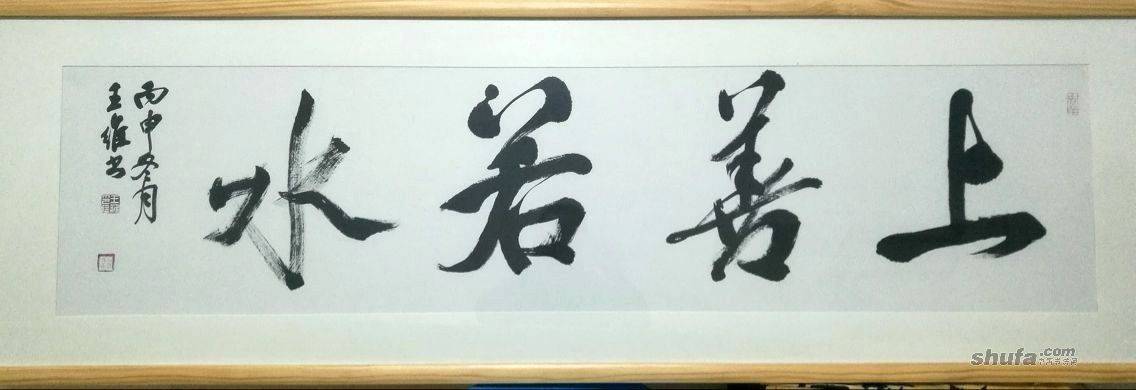 上善若水
丙申冬月
王维书
shufa.com